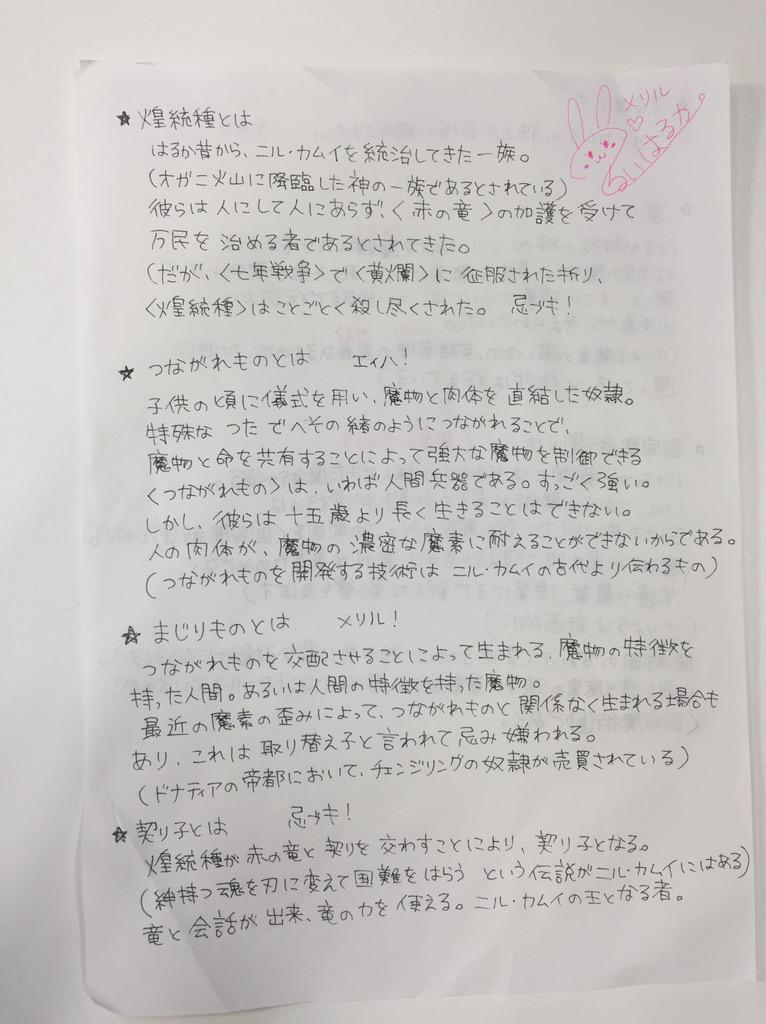 メリル
♡
るいはるか。
★ 煌統種とは
はるか昔から、ニル・カムイを統治してきた一族。
(オガニ火山に降臨した神の一族であるとされている)
彼らは人にして人にあらず、〈赤の竜〉の加護を受けて
万民を治める者であるとされてきた。
(だが、〈七年戦争〉で〈黄爛〉に征服された折り、
〈煌統種〉はことごとく殺し尽くされた。 忌ブキ!
★ つながれものとは エィハ!
子供の頃に儀式を用い、魔物と肉体を直結した奴隷。
特殊な つた でへその緒のようにつながれることで、
魔物と命を共有することによって強大な魔物を制御できる
〈つながれもの〉は、いわば人間兵器である。すっごく強い。
しかし、彼らは十五歳より長く生きることはできない。
人の肉体が、魔物の濃密な魔素に耐えることができないからである。
(つながれものを開発する技術は ニル・カムイの古代より伝わるもの)
★ まじりものとは メリル!
つながれものを交配させることによって生まれる、魔物の特徴を
持った人間。あるいは人間の特徴を持った魔物。
最近の魔素の歪みによって、つながれものと関係なく生まれる場合も
あり、これは取り替え子と言われて忌み嫌われる。
(ドナティアの帝都において、チェンジリングの奴隷が売買されている)
★ 契り子とは 忌ブキ!
煌統種が赤の竜と契りを交わすことにより、契り子となる。
(絆持つ魂を刃に変えて困難をはらう という伝説がニル・カムイにはある)
竜と会話が出来、竜の力を使える。ニル・カムイの王となる者。